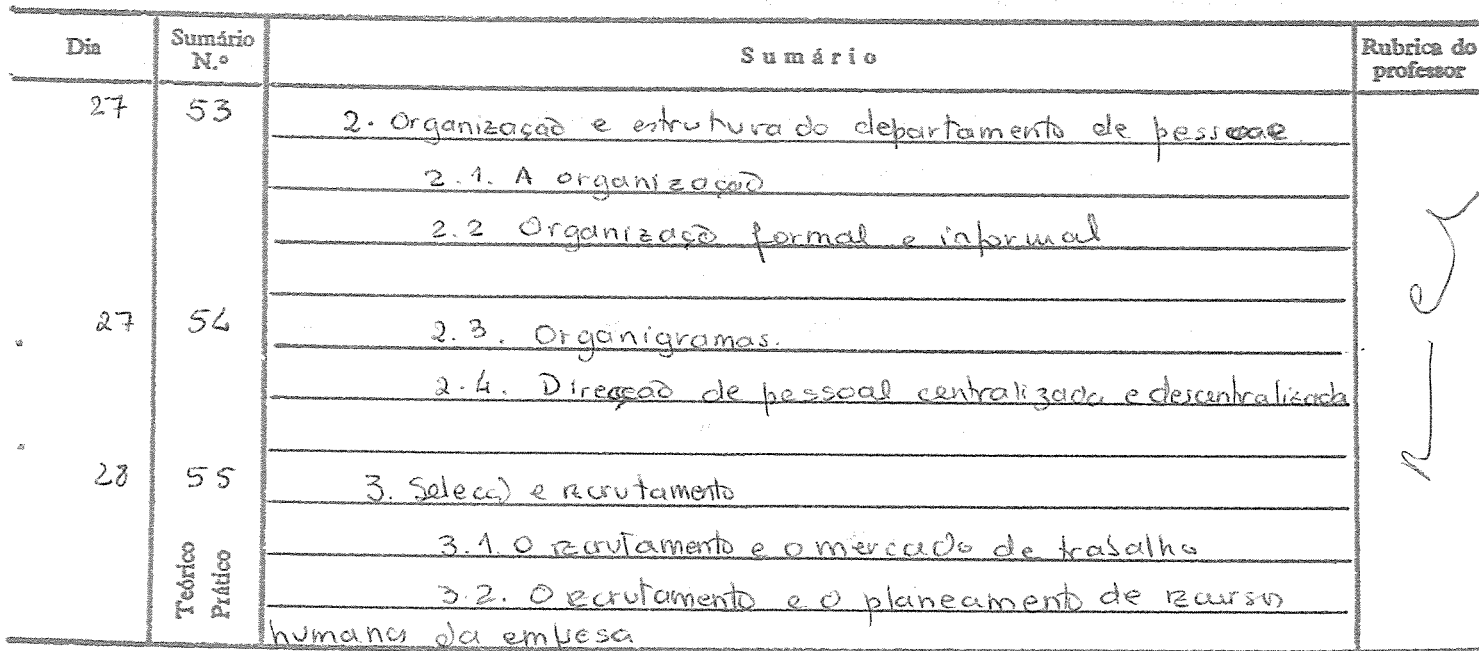 Dia Sumário N.º Sumário Rubrica do professor
27 53 2. Organização e estrutura do departamento de pessoal
2.1. A organização
2.2 Organização formal e informal
27 54 2.3. Organigramas.
2.4. Direcção de pessoal centralizada e descentralizada
28 55 3. Selecção e recrutamento
Teórico Prático
3.1. O recrutamento e o mercado de trabalho
3.2. O recrutamento e o planeamento de recursos
humanos da empresa